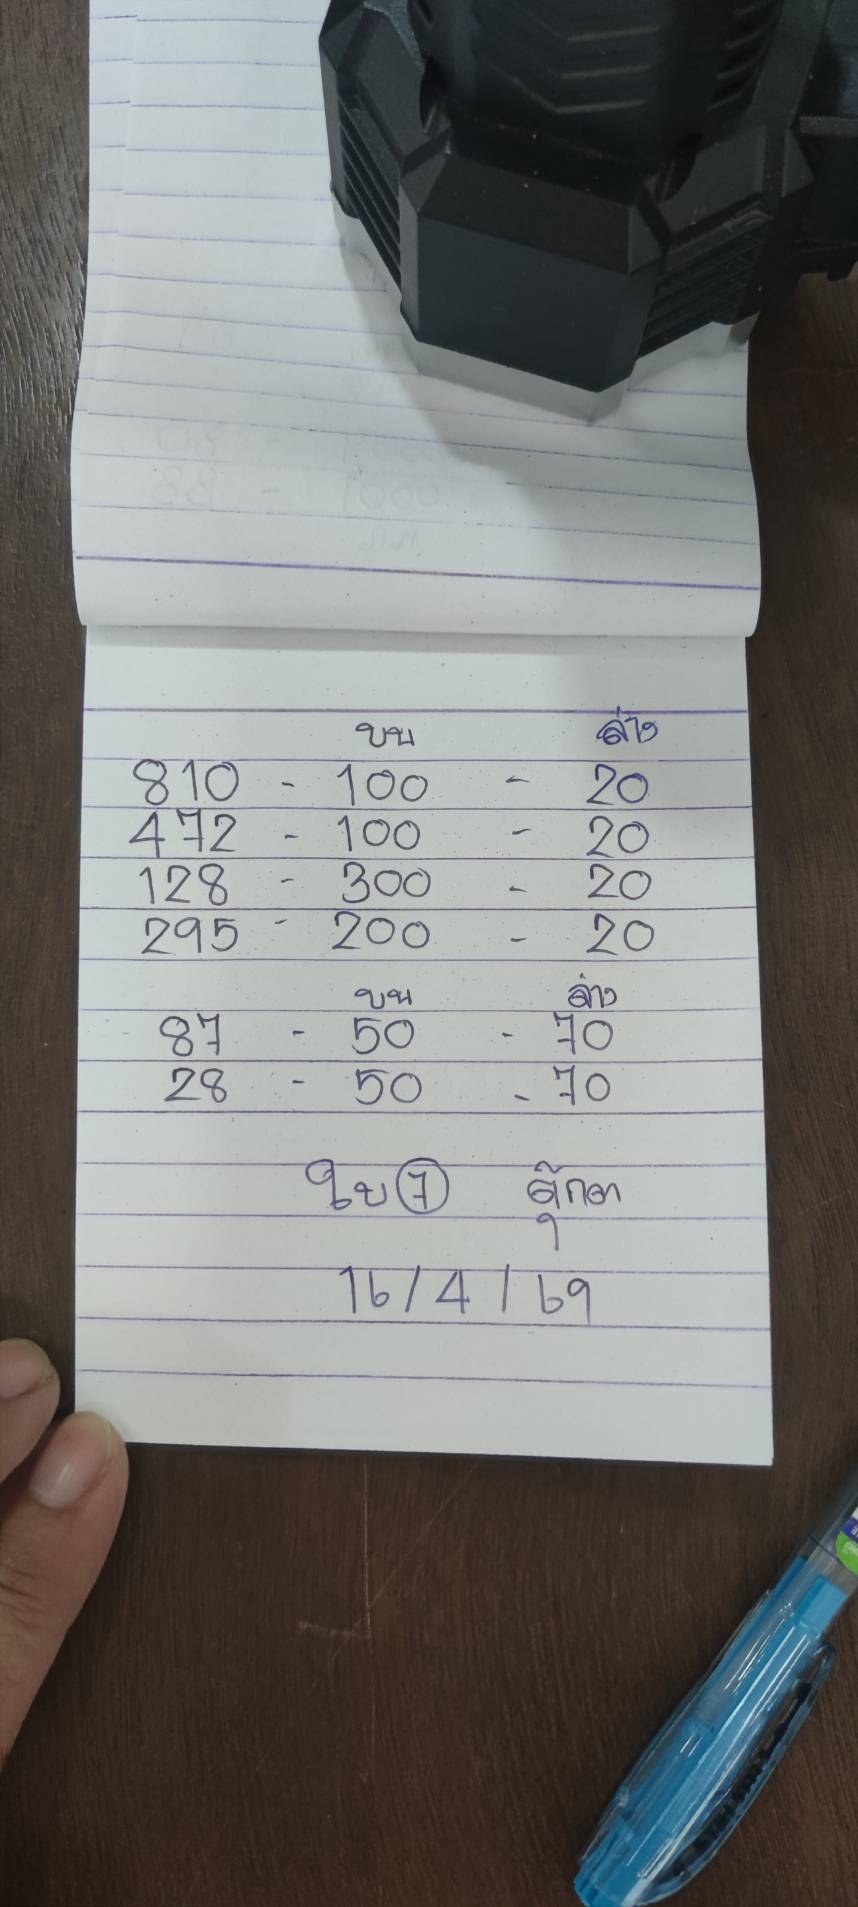 บน ล่าง
810 - 100 - 20
472 - 100 - 20
128 - 300 - 20
295 - 200 - 20
บน ล่าง
87 - 50 - 70
28 - 50 - 70
ใบ 7 ตุ๊กตา
16/4/69